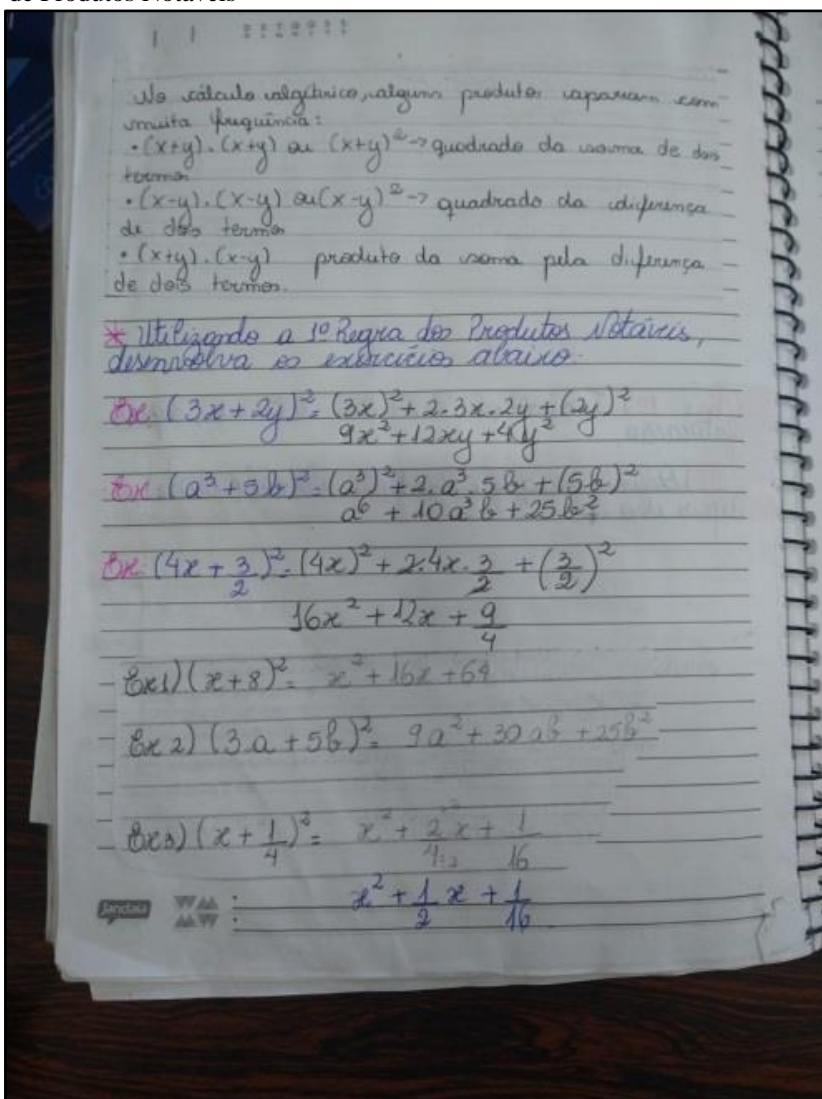 de Produtos Notáveis
No cálculo algébrico, alguns produtos aparecem com
muita frequência:
• (x+y).(x+y) ou (x+y)² -> quadrado da soma de dois
termos
• (x-y).(x-y) ou (x-y)² -> quadrado da diferença
de dois termos
• (x+y).(x-y) produto da soma pela diferença
de dois termos.
* Utilizando a 1º Regra dos Produtos Notáveis,
desenvolva os exercícios abaixo.
Ex: (3x+2y)² = (3x)² + 2.3x.2y + (2y)²
9x² + 12xy + 4y²
Ex: (a³+5b)² = (a³)² + 2.a³.5b + (5b)²
a⁶ + 10a³b + 25b²
Ex: (4x + 3/2)² = (4x)² + 2.4x.3/2 + (3/2)²
16x² + 12x + 9/4
Ex1) (x+8)² = x² + 16x + 64
Ex2) (3a + 5b)² = 9a² + 30ab + 25b²
Ex3) (x + 1/4)² = x² + 2:2/4:2 x + 1/16
x² + 1/2 x + 1/16
Jandaia